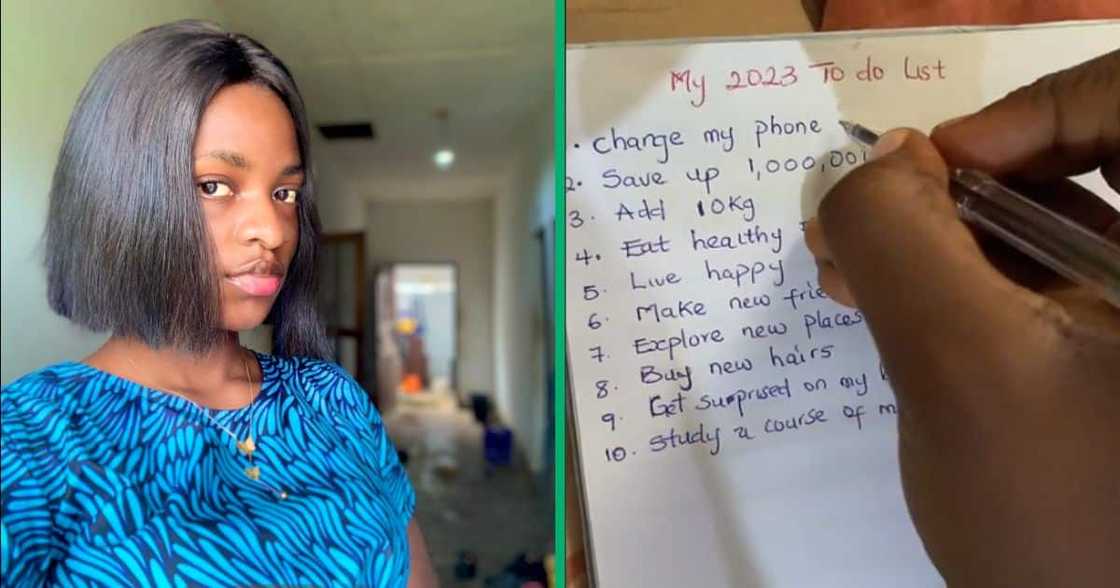 My 2023 To do List
. change my phone
2. Save up 1,000,00
3. Add 10Kg
4. Eat healthy
5. Live happy
6. Make new
7. Explore new places
8. Buy new hairs
9. Get surprised on my
10. Study a course of